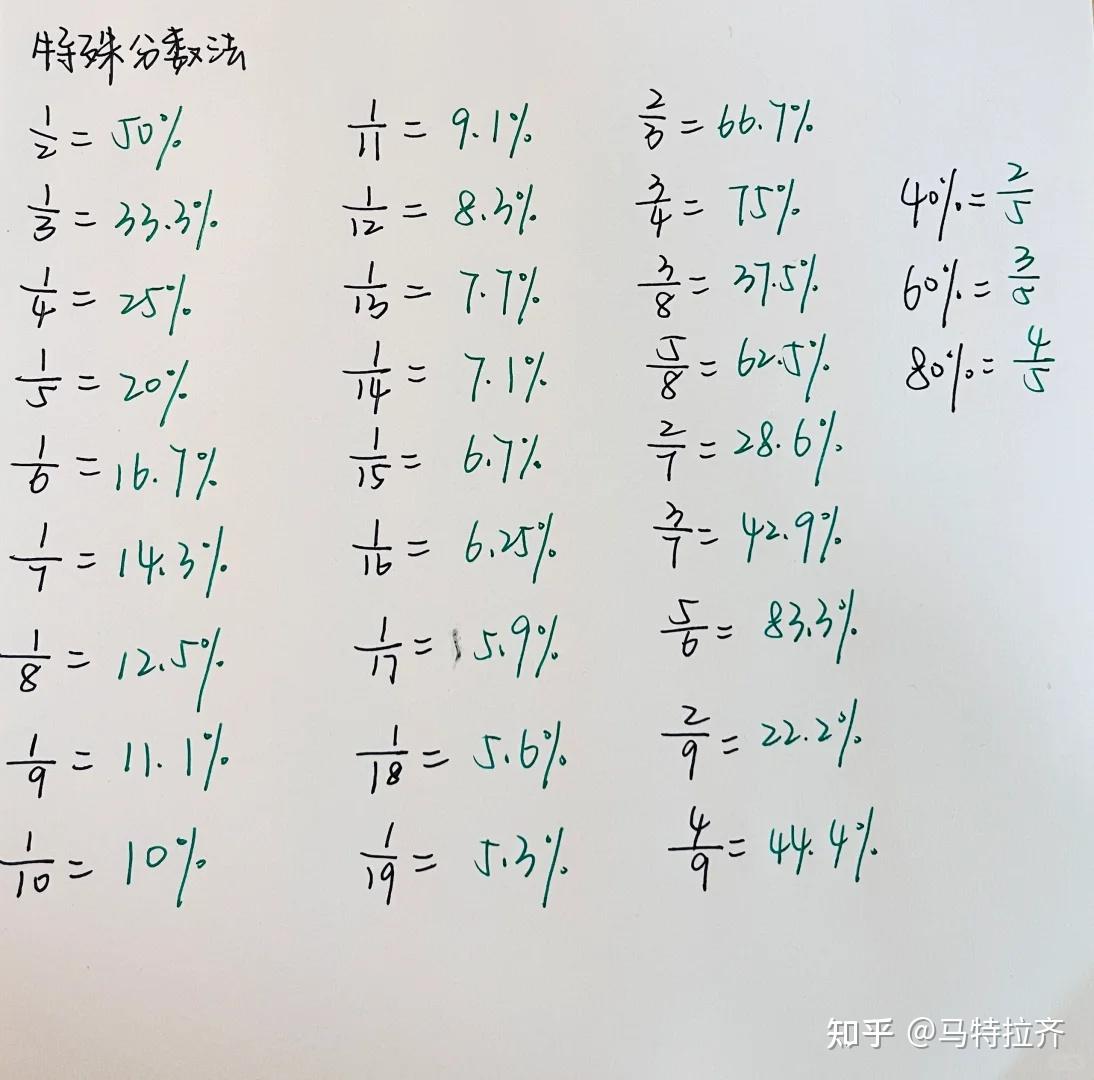 特殊分数法
1/2 = 50%
1/3 = 33.3%
1/4 = 25%
1/5 = 20%
1/6 = 16.7%
1/7 = 14.3%
1/8 = 12.5%
1/9 = 11.1%
1/10 = 10%
1/11 = 9.1%
1/12 = 8.3%
1/13 = 7.7%
1/14 = 7.1%
1/15 = 6.7%
1/16 = 6.25%
1/17 = 5.9%
1/18 = 5.6%
1/19 = 5.3%
2/3 = 66.7%
3/4 = 75%
3/8 = 37.5%
5/8 = 62.5%
2/7 = 28.6%
3/7 = 42.9%
5/6 = 83.3%
2/9 = 22.2%
4/9 = 44.4%
40% = 2/5
60% = 3/5
80% = 4/5
知乎 @马特拉齐